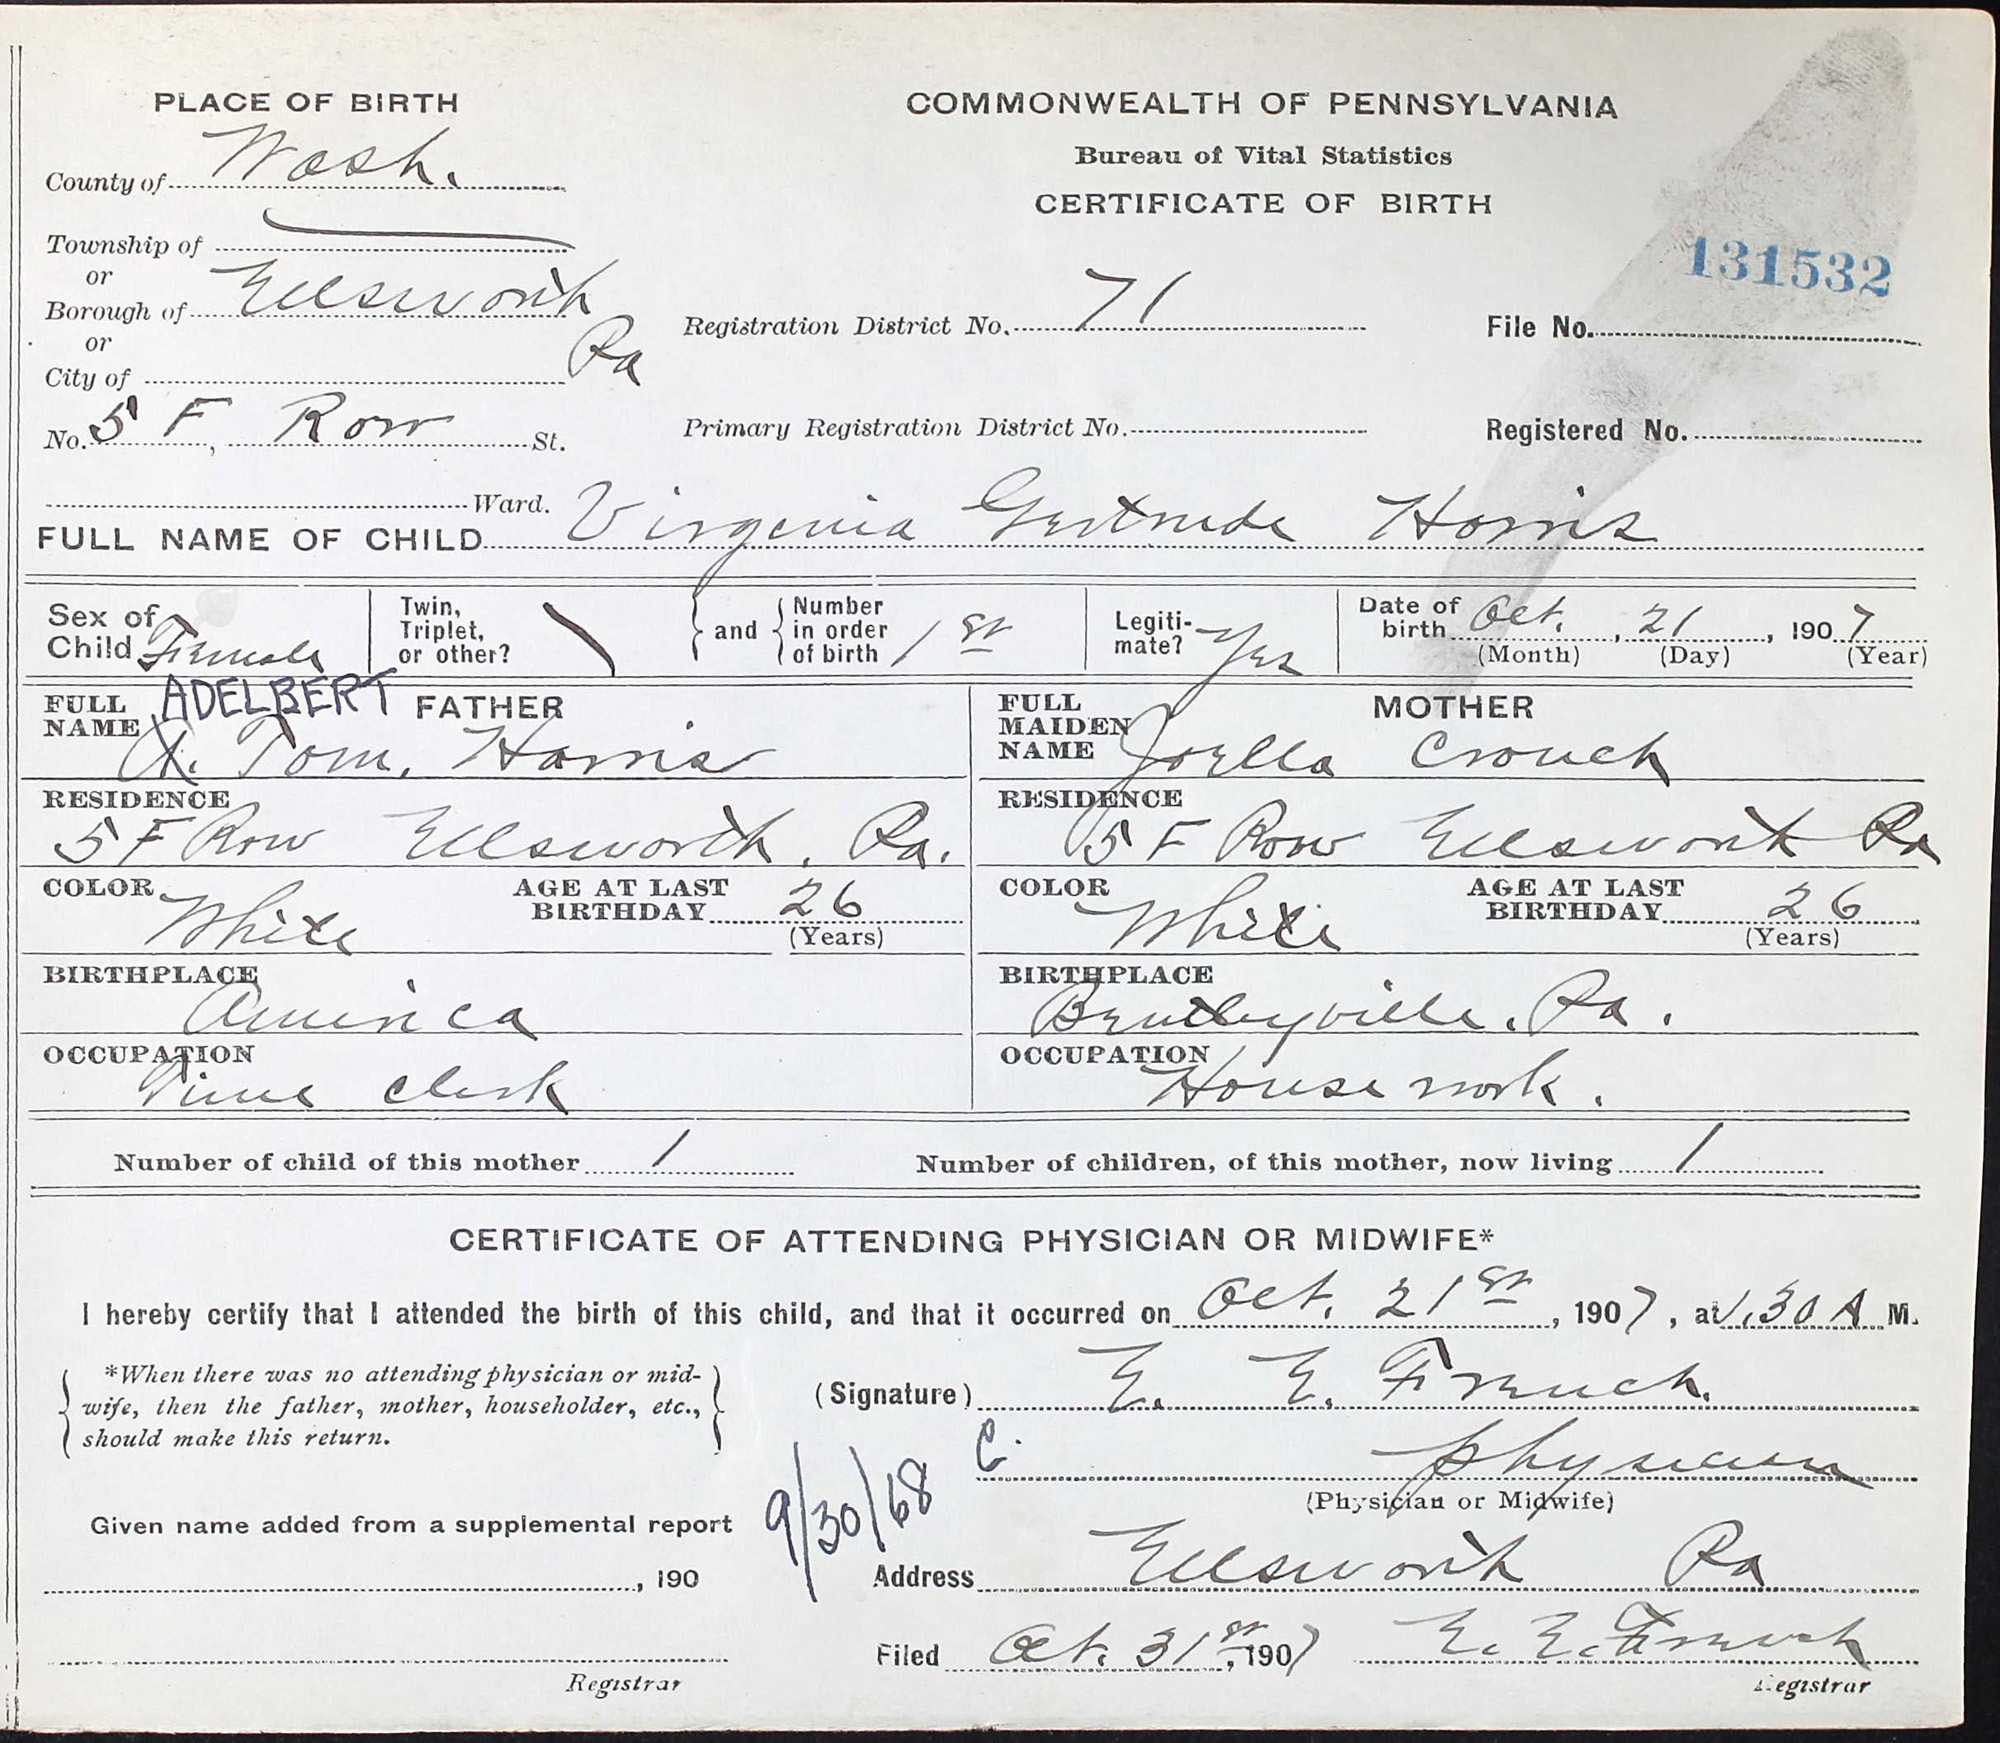 PLACE OF BIRTH
COMMONWEALTH OF PENNSYLVANIA
Bureau of Vital Statistics
CERTIFICATE OF BIRTH
131532
County of Wash.
Township of
or
Borough of Ellsworth
or
City of Pa
No. 5 F, Row St.
Ward.
Registration District No. 71
File No.
Primary Registration District No.
Registered No.
FULL NAME OF CHILD Virginia Gertrude Harris
Sex of Child Female
Twin, Triplet, or other? \
and Number in order of birth 1st
Legitimate? Yes
Date of birth Oct. , 21 , 1907
(Month) (Day) (Year)
FATHER
FULL NAME ADELBERT
A. Tom. Harris
RESIDENCE
5 F Row Ellsworth. Pa.
COLOR White
AGE AT LAST BIRTHDAY 26
(Years)
BIRTHPLACE
America
OCCUPATION
Time Clerk
MOTHER
FULL MAIDEN NAME Joella Crouch
RESIDENCE
5 F Row Ellsworth Pa
COLOR White
AGE AT LAST BIRTHDAY 26
(Years)
BIRTHPLACE
Bentleyville. Pa.
OCCUPATION
House work.
Number of child of this mother 1
Number of children, of this mother, now living 1
CERTIFICATE OF ATTENDING PHYSICIAN OR MIDWIFE*
I hereby certify that I attended the birth of this child, and that it occurred on Oct. 21st, 1907, at 1.30 A M.
*When there was no attending physician or mid-
wife, then the father, mother, householder, etc.,
should make this return.
(Signature) E. E. French.
C.
Physician
(Physician or Midwife)
Given name added from a supplemental report
9/30/68
, 190
Registrar
Address Ellsworth Pa
Filed Oct. 31st, 1907 E. E. French
Registrar